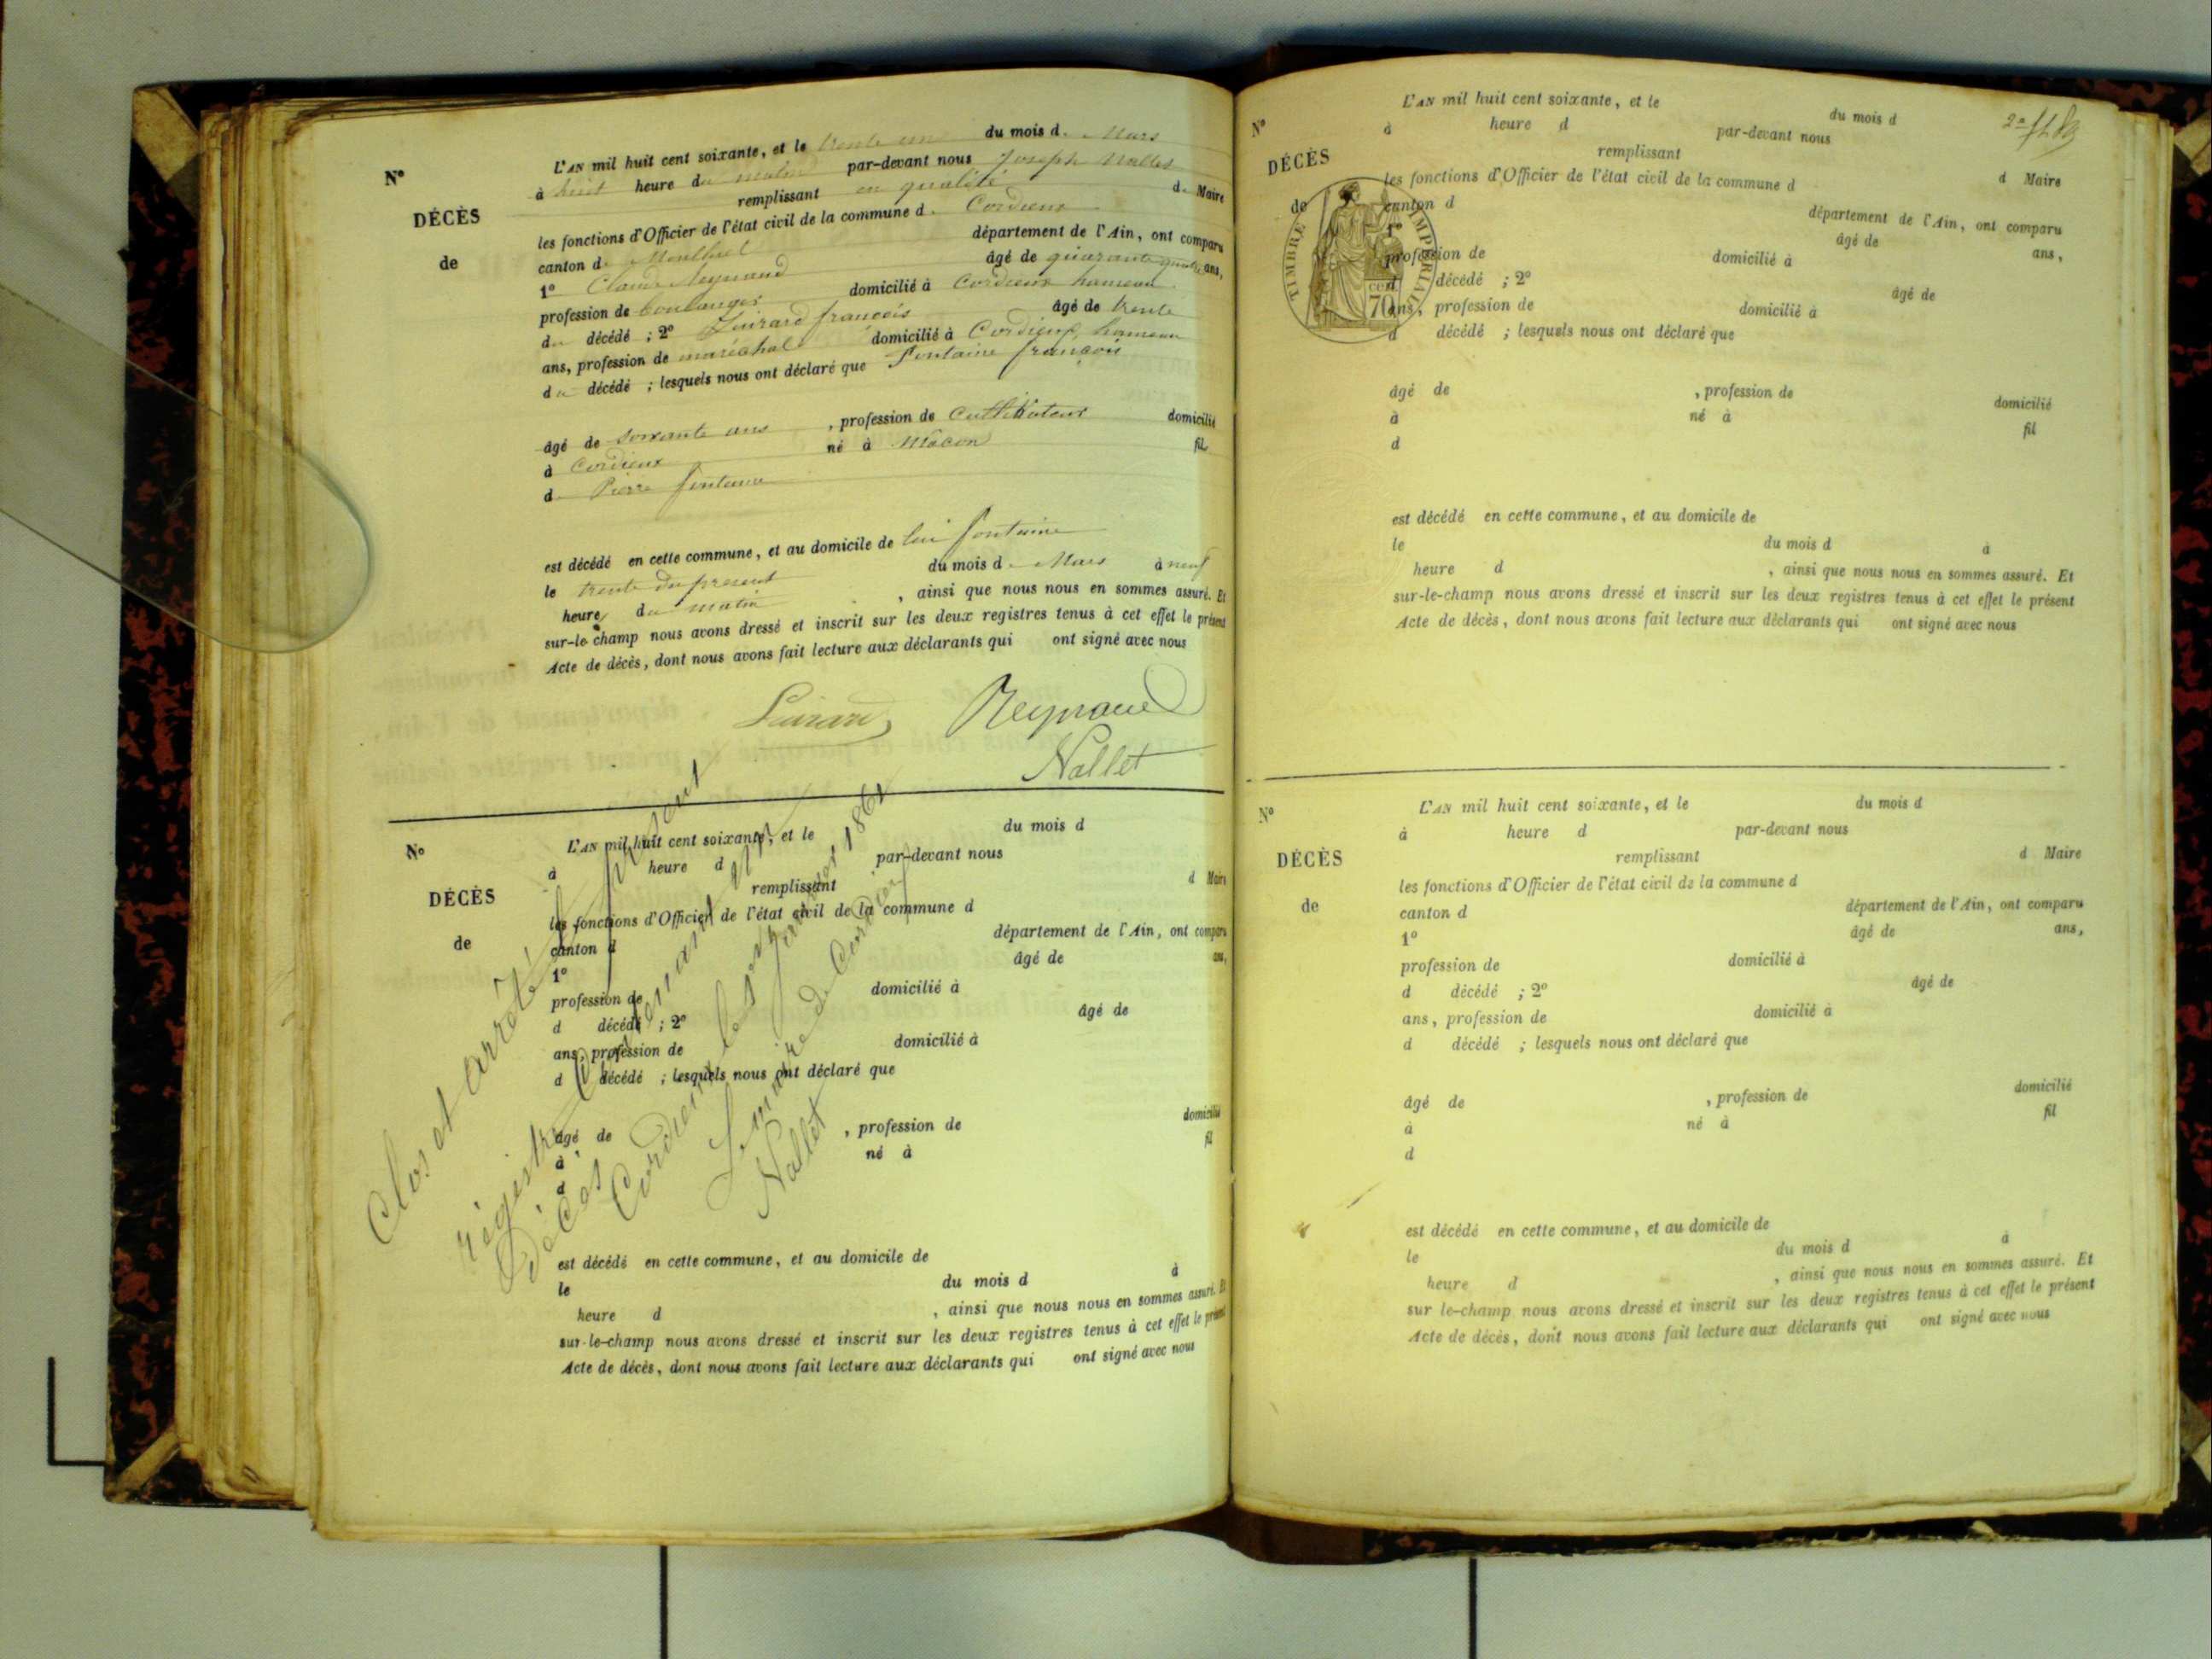 N°
DÉCÈS
de
L'AN mil huit cent soixante, et le trente un du mois d. Mars
à huit heure du matin par-devant nous Joseph Nallet
remplissant en qualité d. Maire
les fonctions d'Officier de l'état civil de la commune d. Cordieux
canton d. Montluel département de l'Ain, ont comparu
1° Claude Reynaud âgé de quarante quatre ans,
profession de boulanger domicilié à Cordieux hameau
du décédé ; 2° françois âgé de trente
ans, profession de maréchal domicilié à Cordieux hameau
du décédé ; lesquels nous ont déclaré que fontaine françois
âgé de soixante ans , profession de Cultivateur domicilié
à Cordieux né à Macon fil
d. Pierre fontaine
est décédé en cette commune, et au domicile de lui fontaine
le trente du present du mois d. Mars à neuf
heure du matin , ainsi que nous nous en sommes assuré. Et
sur-le champ nous avons dressé et inscrit sur les deux registres tenus à cet effet le présent
Acte de décès, dont nous avons fait lecture aux déclarants qui ont signé avec nous
Reynaud
Nallet
N°
DÉCÈS
de
L'AN mil huit cent soixante, et le du mois d
à heure d par-devant nous
remplissant d Maire
les fonctions d'Officier de l'état civil de la commune d
canton d département de l'Ain, ont comparu
1° âgé de ans,
profession de domicilié à
d décédé ; 2° âgé de
ans, profession de domicilié à
d décédé ; lesquels nous ont déclaré que
âgé de , profession de domicilié
à né à fil
d
est décédé en cette commune, et au domicile de
le du mois d à
heure d , ainsi que nous nous en sommes assuré. Et
sur-le-champ nous avons dressé et inscrit sur les deux registres tenus à cet effet le présent
Acte de décès, dont nous avons fait lecture aux déclarants qui ont signé avec nous
Clos et arrêté le présent
régistre Contenant
Décès
Cordieux le janvier 1861
Le maire de Cordieux
Nallet
N°
DÉCÈS
de
L'AN mil huit cent soixante, et le du mois d
à heure d par-devant nous
remplissant d Maire
les fonctions d'Officier de l'état civil de la commune d
canton d département de l'Ain, ont comparu
1° âgé de ans,
profession de domicilié à
d décédé ; 2° âgé de
ans, profession de domicilié à
d décédé ; lesquels nous ont déclaré que
TIMBRE IMPERIAL
cent
70
âgé de , profession de domicilié
à né à fil
d
est décédé en cette commune, et au domicile de
le du mois d à
heure d , ainsi que nous nous en sommes assuré. Et
sur-le-champ nous avons dressé et inscrit sur les deux registres tenus à cet effet le présent
Acte de décès, dont nous avons fait lecture aux déclarants qui ont signé avec nous
N°
DÉCÈS
de
L'AN mil huit cent soixante, et le du mois d
à heure d par-devant nous
remplissant d Maire
les fonctions d'Officier de l'état civil de la commune d
canton d département de l'Ain, ont comparu
1° âgé de ans,
profession de domicilié à
d décédé ; 2° âgé de
ans, profession de domicilié à
d décédé ; lesquels nous ont déclaré que
âgé de , profession de domicilié
à né à fil
d
est décédé en cette commune, et au domicile de
le du mois d à
heure d , ainsi que nous nous en sommes assuré. Et
sur le-champ nous avons dressé et inscrit sur les deux registres tenus à cet effet le présent
Acte de décès, dont nous avons fait lecture aux déclarants qui ont signé avec nous